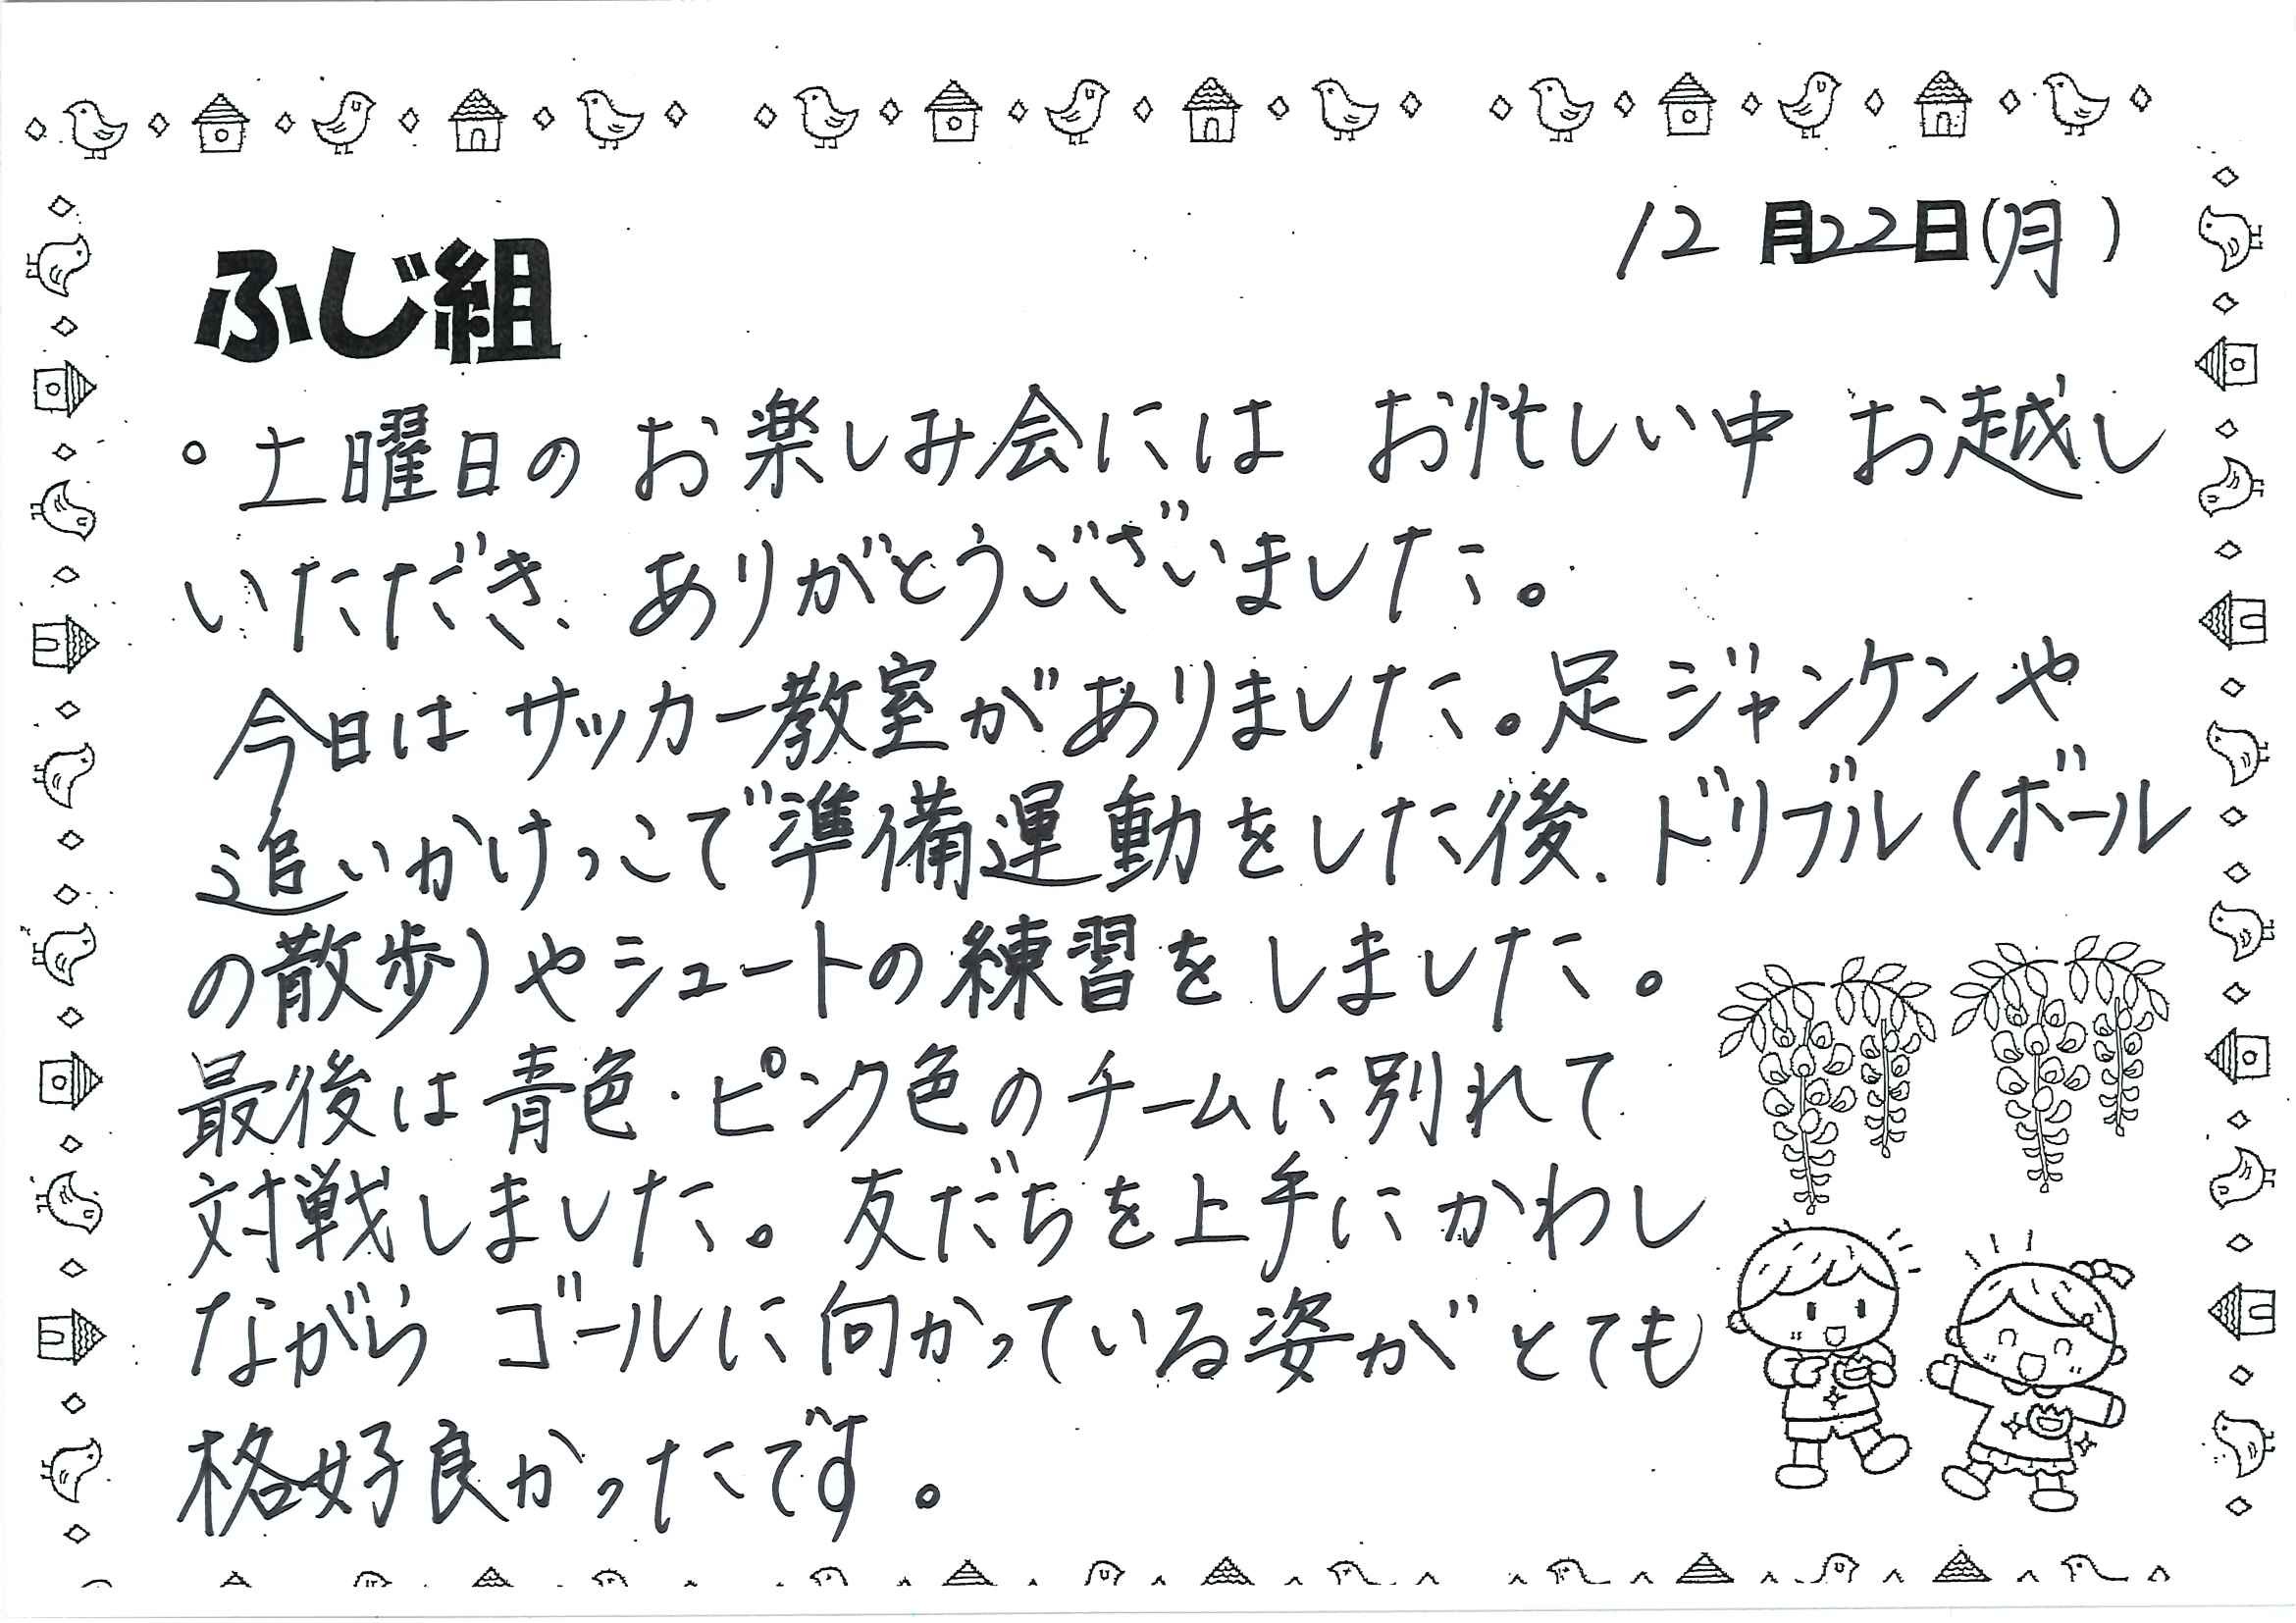 12月22日(月)
ふじ組
。土曜日の お楽しみ会には お忙しい中 お越し
いただき、ありがとうございました。
今日は サッカー教室がありました。足ジャンケンや
追いかけっこで準備運動をした後、ドリブル(ボール
の散歩)やシュートの練習をしました。
最後は青色・ピンク色のチームに別れて
対戦しました。友だちを上手にかわし
ながら ゴールに向かっている姿が とても
格好良かったです。